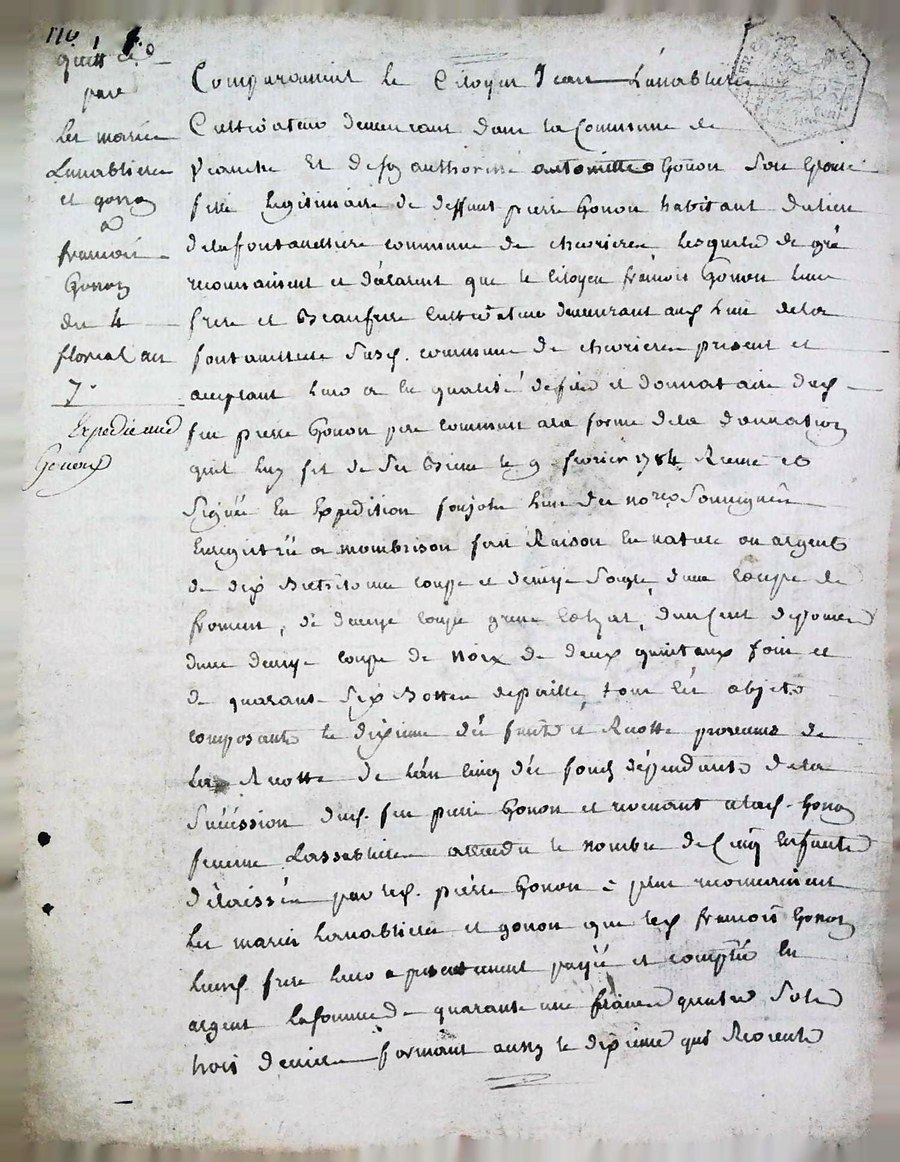 116
quitt ce
par
les mariés
Lanabliere
et gonon
a
francois
Gonon
du 4
floreal an
7.
Expediee aud
Gonon
Comparaissent le Citoyen Jean
Cultivateur demeurant dans la Commune de
et de soy authorisé antoinette Gonon son epouse
fille legitimaire de deffunt pierre Gonon habitant du lieu
de la fontanelliere commune de chevrieres lesquels de gré
reconnaissent et déclarent que le Citoyen francois Gonon leur
frere et Beaufrere Cultivateur demeurant aud. lieu de la
fontanelliere susd. commune de chevrieres present et
acceptant leur a en qualité de fils et donnataire dud.
feu pierre Gonon pere commun a la forme de la donnation
quil luy fit de ses biens le 9 fevrier 1784 Recue et
signée en Expedition par les nores soussignés
Enregistrée a mombrison fait Raison en nature ou argent
de dix coupe et demye soigle, dune Coupe de
froment, de demye coupe grene Colzat, dun Cent de pomes
dune demye coupe de noix de deux quintaux foin et
de quarante six Bottes de paille, tous les objets
composants le dixieme des fruits et Recolte provenus de
la Recolte de l'an Cinq des fonds dépendants de la
succession dud. feu pierre Gonon et revenant a lad. Gonon
femme attendu le nombre de Cinq Enfants
délaissés par led. pierre Gonon e plus reconnaissent
les mariés et gonon que led francois Gonon
leurd. frere leur a presentement payé et compté en
argent la somme de quarante une francs quatre sols
trois deniers formant aussy le dixieme qui Revenoit